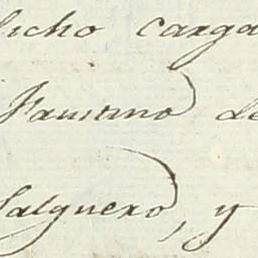 dicho carga
Faustino de
Salguero, y